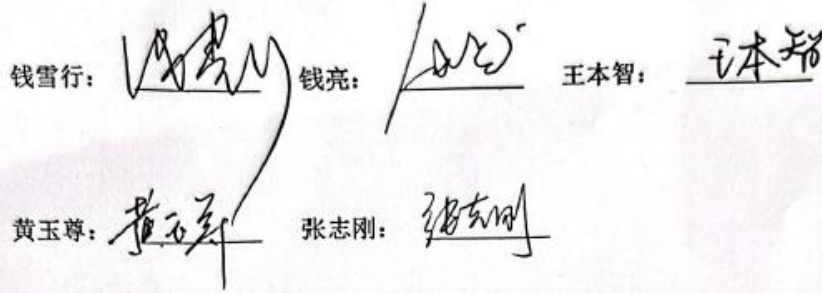 钱雪行： 钱雪行 钱亮： 王本智： 王本智
黄玉尊： 黄玉尊 张志刚： 张志刚